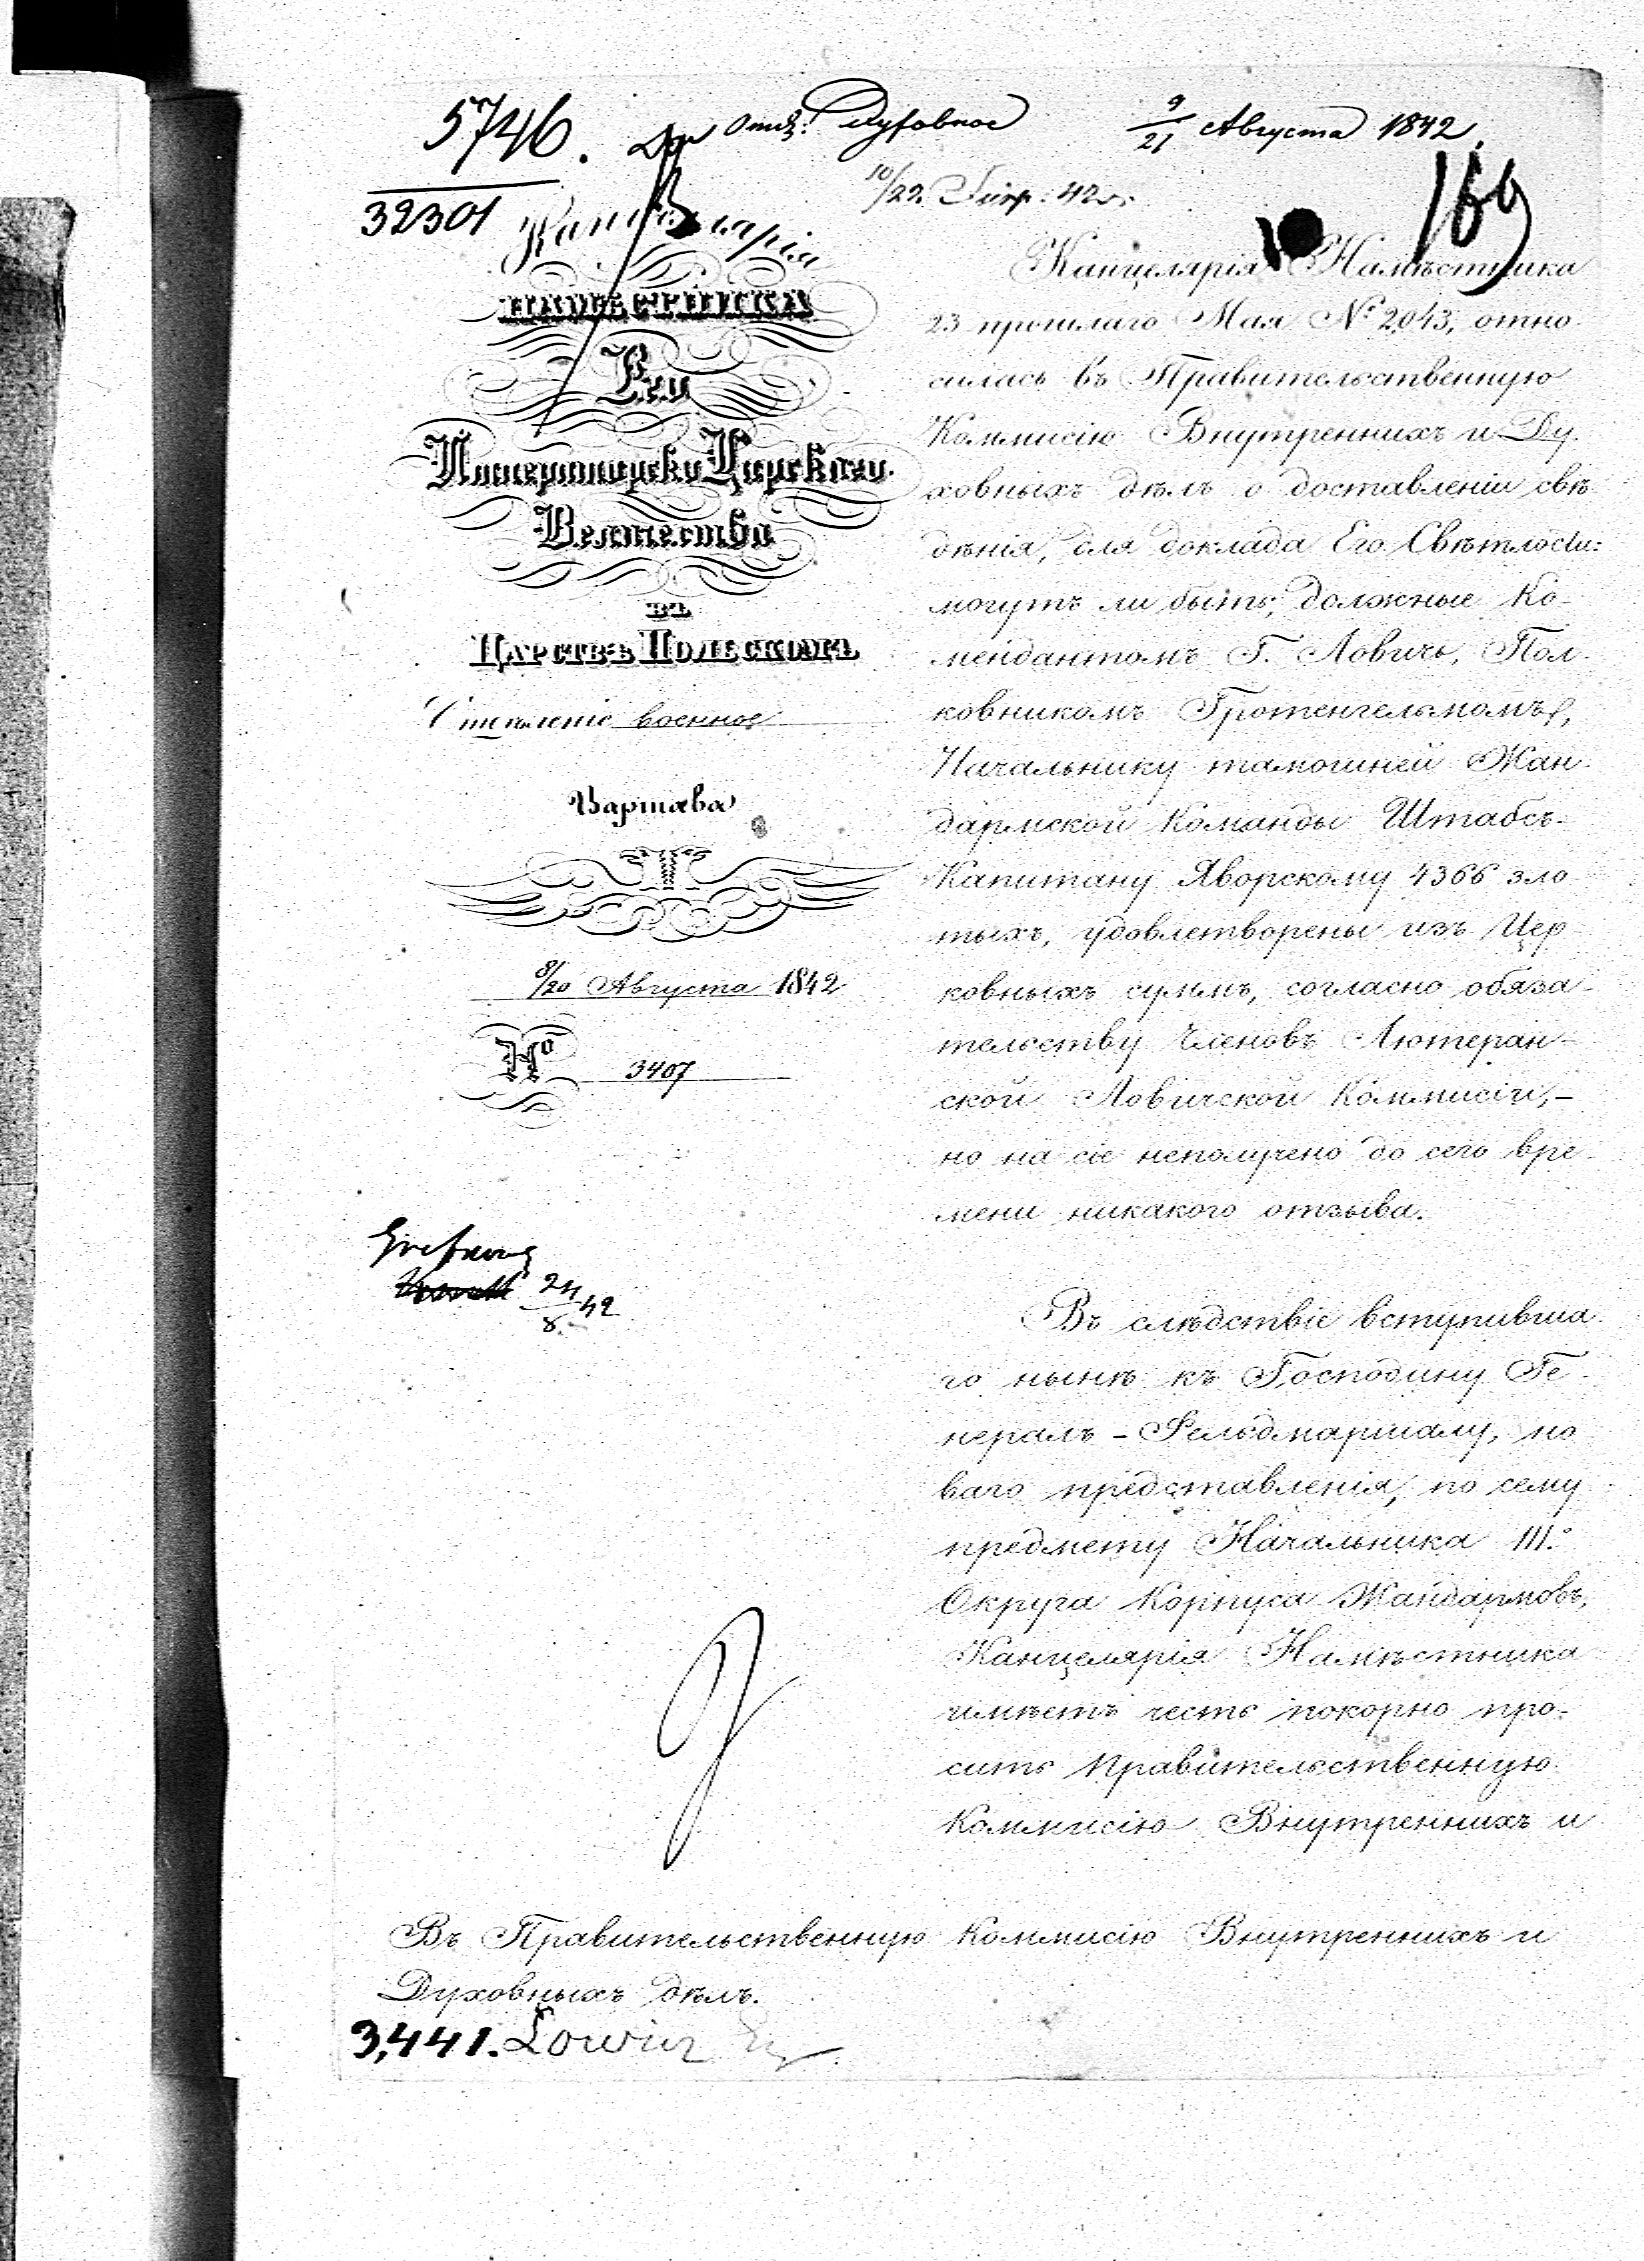 5746. Отд: Духовное 9/21 Августа 1842.
32301 10/22. 42
169
Канцелярія
НАМѢСТНИКА
Его
Императорско Царскаго
Величества
ВЪ
ЦАРСТВѢ ПОЛЬСКОМЪ
Отдѣленіе военное
Варшава
8/20 Августа 1842
№ 3407
24/8 42
Канцелярія Намѣстника
23 прошлаго Мая № 2,043, отно-
силась въ Правительственную
Коммисію Внутреннихъ и Ду-
ховныхъ дѣлъ о доставленіи свѣ-
дѣнія, для доклада Его Свѣтлости:
могутъ ли быть, должные Ко-
мендантомъ Г. Ловичь, Пол-
ковникомъ Гротенгельмомъ,
Начальнику тамошней Жан-
дармской Команды Штабсъ-
Капитану Яворскому 4366 зло-
тыхъ, удовлетворены изъ Цер-
ковныхъ суммъ, согласно обяза-
тельству Членовъ Лютеран-
ской Ловичской Коммисіи,-
но на сіе неполучено до сего вре-
мени никакого отзыва.
Въ слѣдствіе вступивша-
го нынѣ къ Господину Ге-
нералъ-Фельдмаршалу, но-
ваго представленія, по сему
предмету Начальника III.º
Округа Корпуса Жандармовъ,
Канцелярія Намѣстника
имѣетъ честь покорно про-
сить Правительственную
Коммисію Внутреннихъ и
Въ Правительственную Коммисію Внутреннихъ и
Духовныхъ дѣлъ.
3,441. Lowicz